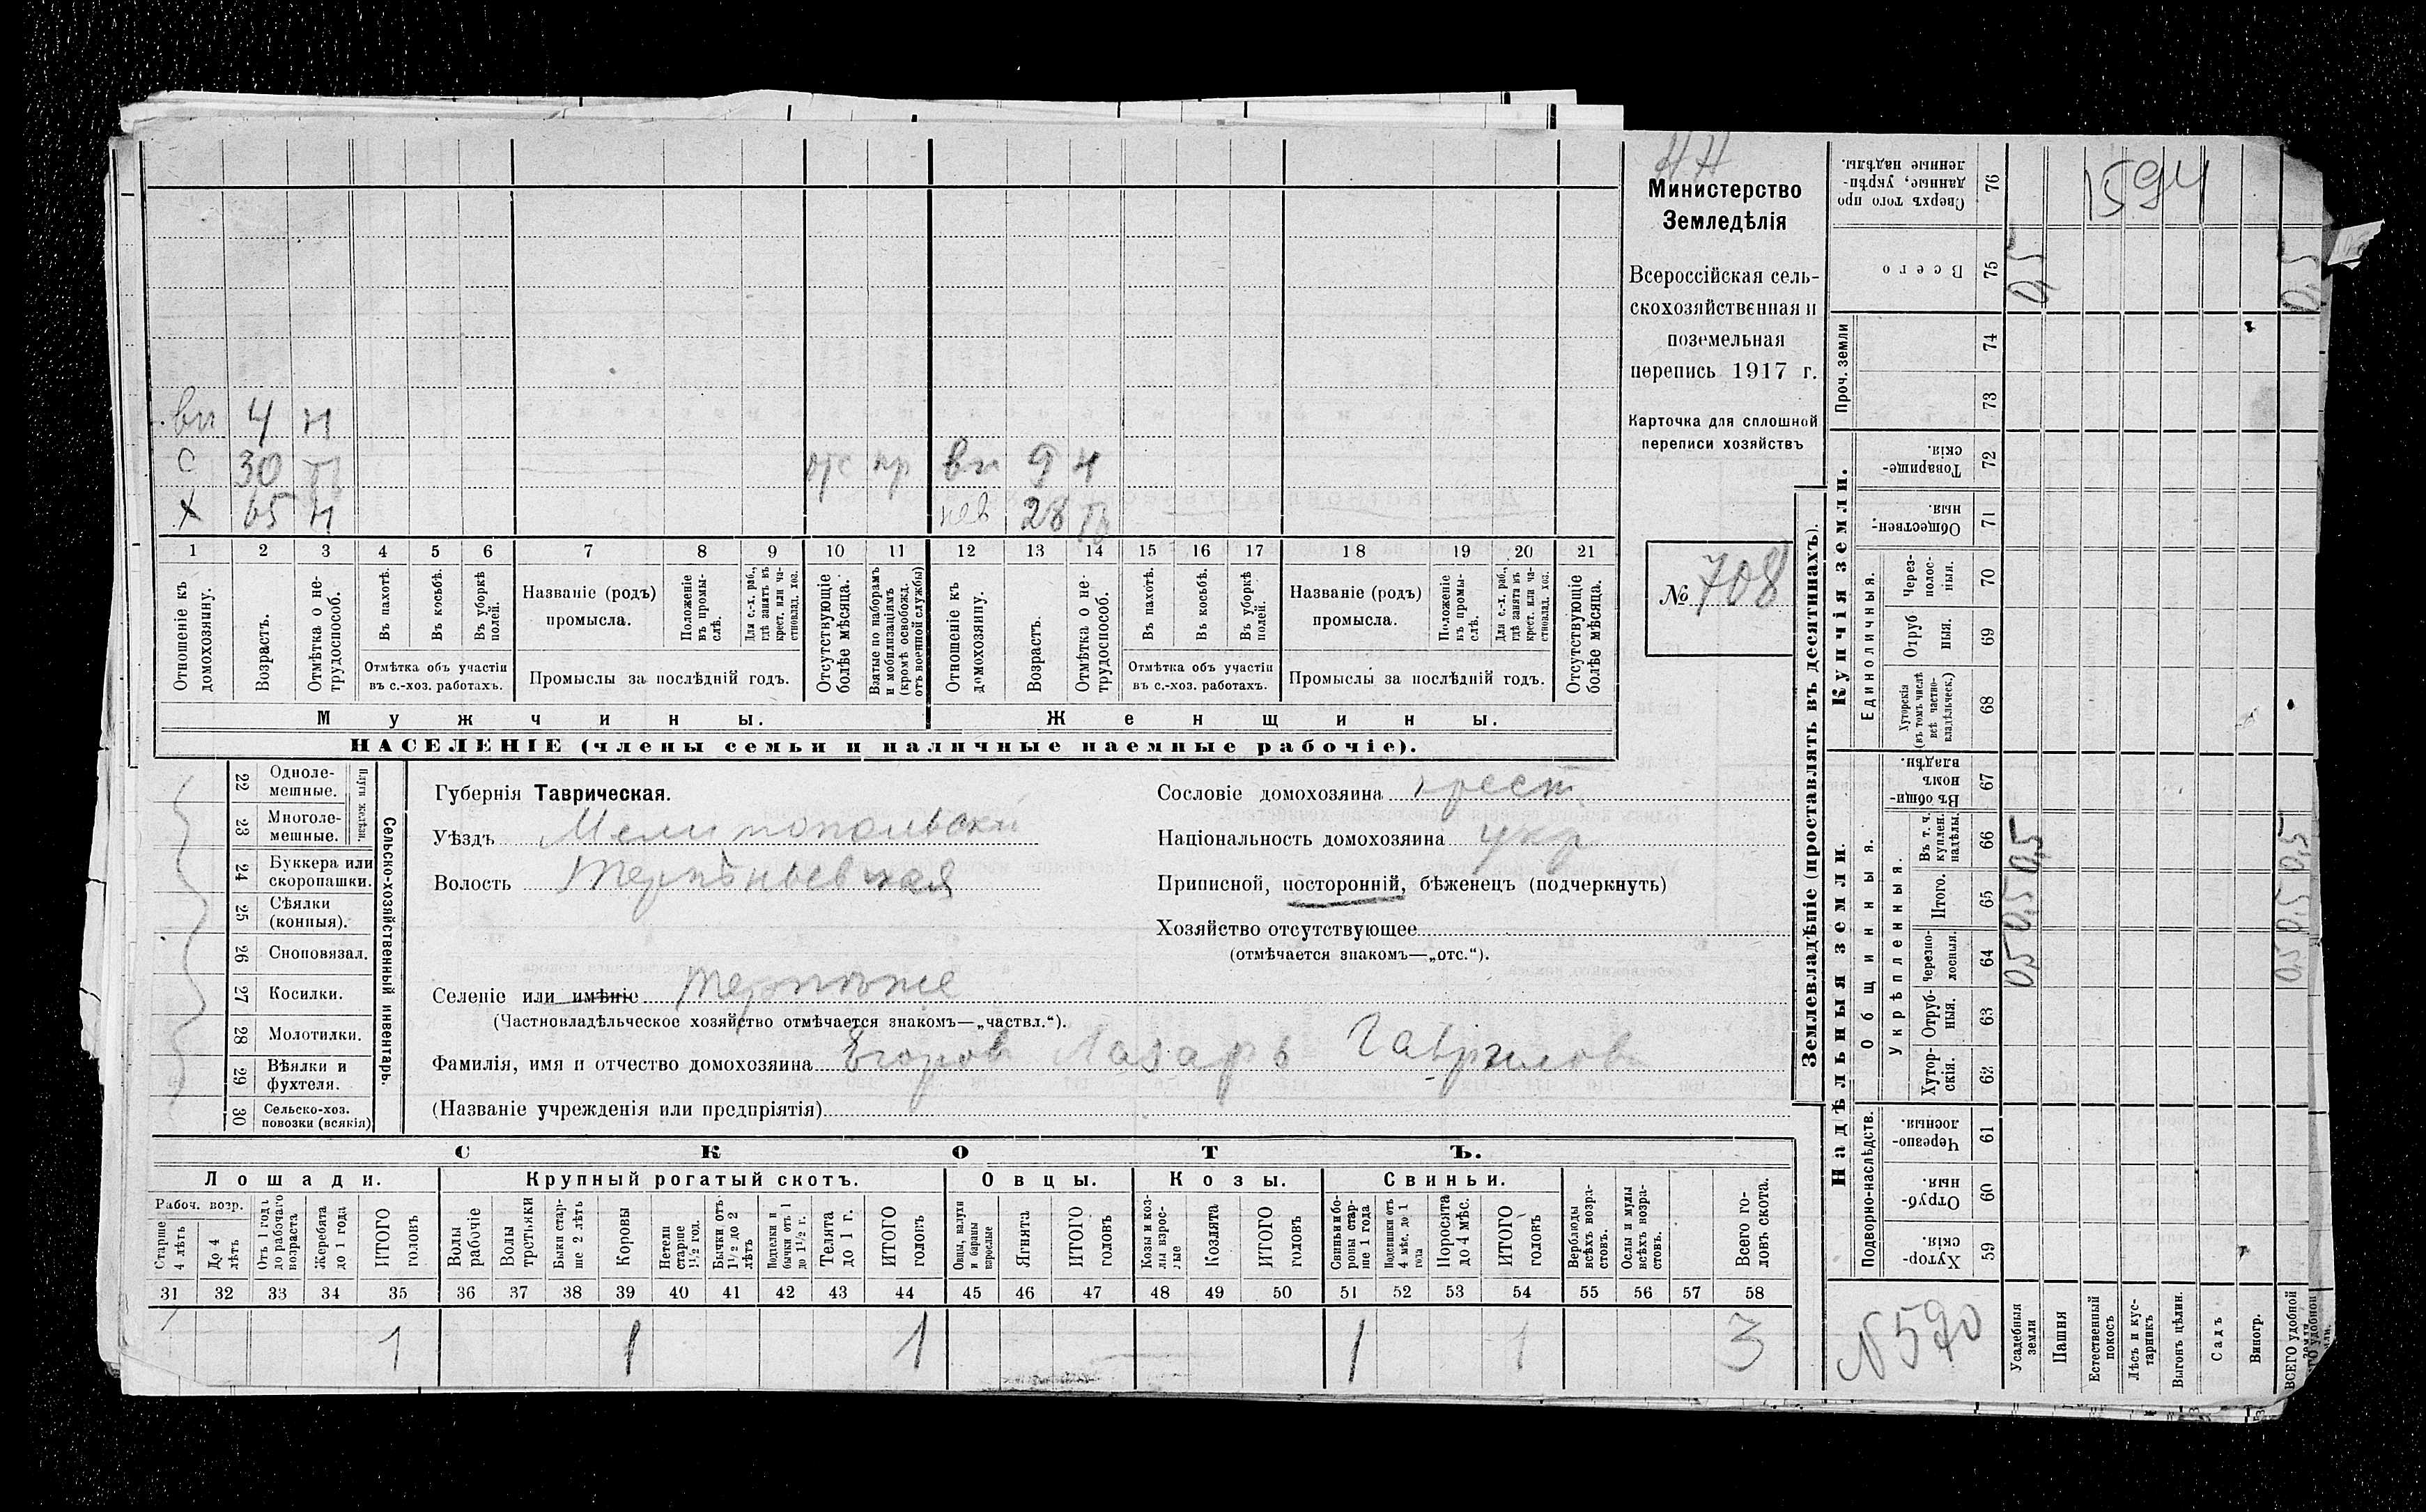 НН
Министерство
Земледѣлія
Всероссійская сель-
скохозяйственная и
поземельная
перепись 1917 г.
Карточка для сплошной
переписи хозяйствъ
№ 708
вн 4 н
с 30 тр отс пр вн 9 н
х 65 н нев 28 тр
1 2 3 4 5 6 7 8 9 10 11 12 13 14 15 16 17 18 19 20 21
Отношеніе къ домохозяину.
Возрастъ.
Отмѣтка о не-трудоспособ.
Въ пахотѣ.
Въ косьбѣ.
Въ уборкѣ полей.
Отмѣтка объ участіи
въ с.-хоз. работахъ.
Названіе (родъ)
промысла.
Положеніе въ промы-слѣ.
Для с.-х. раб., гдѣ занятъ въ крест. или ча-стновлад. хоз.
Промыслы за послѣдній годъ.
Отсутствующіе болѣе мѣсяца.
Взятые по наборамъ и мобилизаціямъ (кромѣ освобожд. отъ военной службы)
Отношеніе къ домохозяину.
Возрастъ.
Отмѣтка о не-трудоспособ.
Въ пахотѣ.
Въ косьбѣ.
Въ уборкѣ полей.
Отмѣтка объ участіи
въ с.-хоз. работахъ.
Названіе (родъ)
промысла.
Положеніе въ промы-слѣ.
Для с.-х. раб., гдѣ занята въ крест. или ча-стновлад. хоз.
Промыслы за послѣдній годъ.
Отсутствующіе болѣе мѣсяца.
Мужчины.
Женщины.
НАСЕЛЕНІЕ (члены семьи и наличные наемные рабочіе).
22 Одноле-мешные.
23 Многоле-мешные.
Плуги желѣзн.
24 Буккера или скоропашки.
25 Сѣялки (конныя).
26 Сноповязал.
27 Косилки.
28 Молотилки.
29 Вѣялки и фухтеля.
30 Сельско-хоз. повозки (всякія)
Сельско-хозяйственный инвентарь.
Губернія Таврическая.
Уѣздъ Мелитопольский
Волость Терпѣньевская
Селеніе или имѣніе Терпѣнье
(Частновладѣльческое хозяйство отмѣчается знакомъ—„частвл.“).
Фамилія, имя и отчество домохозяина Егоров Лазарь Гаврилов
(Названіе учрежденія или предпріятія)
Сословіе домохозяина крест
Національность домохозяина укр
Приписной, посторонній, бѣженецъ (подчеркнуть)
Хозяйство отсутствующее
(отмѣчается знакомъ—„отс.“).
СКОТЪ.
Лошади.
Крупный рогатый скотъ.
Овцы.
Козы.
Свиньи.
Рабоч. возр.
Старше 4 лѣтъ
До 4 лѣтъ
Отъ 1 года до рабочаго возраста
Жеребята до 1 года
ИТОГО головъ
Волы рабочіе
Волы третьяки
Быки стар-ше 2 лѣтъ
Коровы
Нетели старше 1½ год.
Бычки отъ 1½ до 2 лѣтъ
Подтелки и бычки отъ 1 до 1½ г.
Телята до 1 г.
ИТОГО головъ
Овцы, валухи и бараны взрослые
Ягнята
ИТОГО головъ
Козы и коз-лы взрос-лые
Козлята
ИТОГО головъ
Свиньи и бо-ровы стар-ше 1 года
Подсвинки отъ 4 мѣс. до 1 года
Поросята до 4 мѣс.
ИТОГО головъ
Верблюды всѣхъ возра-стовъ.
Ослы и мулы всѣхъ возра-стовъ.
Всего го-ловъ скота.
31 32 33 34 35 36 37 38 39 40 41 42 43 44 45 46 47 48 49 50 51 52 53 54 55 56 57 58
1 1 1 1 1 3
Землевладѣніе (проставлять въ десятинахъ).
Купчія земли.
Надѣльныя земли.
Сверхъ того про данные, укрѣп-ленные надѣлы. 76
Всего 75
Проч. земли
74
73
Товарище-скія. 72
Обществен-ныя. 71
Единоличныя.
Через-полос-ныя. 70
Отруб ныя. 69
Хуторскія (въ томъ числѣ всѣ частно-владѣльческ.) 68
Общинныя.
Въ общи-номъ владѣн. 67
Укрѣпленныя.
Въ т. ч. куплен. надѣлы. 66
Итого. 65
Черезпо-лосныя. 64
Отруб-ныя. 63
Хутор-скія. 62
Подворно-наслѣдств.
Черезпо-лосныя. 61
Отруб-ныя. 60
Хутор-скія. 59
1594
0,5
0,5
0,5 0,5 0,5
0,5 0,5 0,5
N 590
Усадебныя земли
Пашня
Естественный покосъ
Лѣсъ и кус-тарникъ
Выгонъ цѣлин.
Садъ
Виногр.
ВСЕГО удобной земли